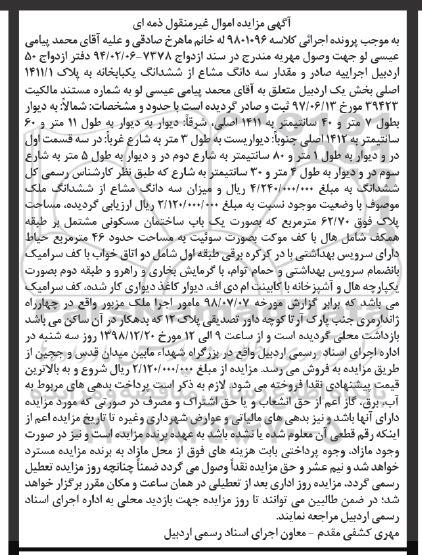 آگهی مزایده اموال غیرمنقول ذمه ای
به موجب پرونده اجرائی کلاسه ۹۸۰۱۰۹۶ له خانم ماهرخ صادقی و علیه آقای محمد پیامی
عیسی لو جهت وصول مهریه مندرج در سند ازدواج ۷۳۷۸-۹۴/۰۲/۰۶ دفتر ازدواج ۵۰
اردبیل اجراییه صادر و مقدار سه دانگ مشاع از ششدانگ یکبابخانه به پلاک ۱۴۱۱/۱
اصلی بخش یک اردبیل متعلق به آقای محمد پیامی عیسی لو به شماره مستند مالکیت
۳۹۴۲۳ مورخ ۹۷/۰۶/۱۳ ثبت و صادر گردیده است با حدود و مشخصات: شمالاً: به دیوار
بطول ۷ متر و ۴۰ سانتیمتر به ۱۴۱۱ اصلی. شرقاً: دیوار به دیوار به طول ۱۱ متر و ۶۰
سانتیمتر به ۱۴۱۲ اصلی جنوباً: دیواریست به طول ۳ متر به شارع غرباً: در سه قسمت اول
در و دیوار به طول ۱ متر و ۸۰ سانتیمتر به شارع دوم در و دیوار به طول ۵ متر به شارع
سوم در و دیوار به طول ۴ متر و ۳۰ سانتیمتر به شارع که طبق نظر کارشناس رسمی کل
ششدانگ به مبلغ ۴/۲۴۰/۰۰۰/۰۰۰ ریال و میزان سه دانگ مشاع از ششدانگ ملک
موصوف با وضعیت موجود نسبت به مبلغ ۲/۱۲۰/۰۰۰/۰۰۰ ریال ارزیابی گردیده، مساحت
پلاک فوق ۶۲/۷۰ مترمربع که بصورت یک باب ساختمان مسکونی مشتمل بر طبقه
همکف شامل هال با کف موکت بصورت سوئیت به مساحت حدود ۴۶ مترمربع حیاط
دارای سرویس بهداشتی با در کرکره برقی طبقه اول شامل دو اتاق خواب با کف سرامیک
بانضمام سرویس بهداشتی و حمام توام، با گرمایش بخاری و راهرو و طبقه دوم بصورت
یکپارچه هال و آشپزخانه با کابینت ام دی اف، دیوار کاغذ دیواری کار شده، کف سرامیک
می باشد که برابر گزارش مورخه ۹۸/۰۷/۰۷ مامور اجرا ملک مزبور واقع در چهارراه
ژاندارمری جنب پارک آرتا کوچه داور تصدیقی پلاک ۱۲ که بدهکار در آن ساکن می باشد
بازداشت محلی گردیده است و از ساعت ۹ الی ۱۲ مورخ ۱۳۹۸/۱۲/۲۰ روز سه شنبه در
اداره اجرای اسناد رسمی اردبیل واقع در بزرگراه شهداء مابین میدان قدس و ججین از
طریق مزایده به فروش می رسد. مزایده از مبلغ ۲/۱۲۰/۰۰۰/۰۰۰ ریال شروع و به بالاترین
قیمت پیشنهادی نقدا فروخته می شود. لازم به ذکر است پرداخت بدهی های مربوط به
آب، برق، گاز اعم از حق انشعاب و یا حق اشتراک و مصرف در صورتی که مورد مزایده
دارای آنها باشد و نیز بدهی های مالیاتی و عوارض شهرداری وغیره تا تاریخ مزایده اعم از
اینکه رقم قطعی آن معلوم شده یا نشده باشد به عهده برنده مزایده است و نیز در صورت
وجود مازاد، وجوه پرداختی بابت هزینه های فوق از محل مازاد به برنده مزایده مسترد
خواهد شد و نیم عشر و حق مزایده نقداً وصول می گردد ضمناً چنانچه روز مزایده تعطیل
رسمی گردد، مزایده روز اداری بعد از تعطیلی در همان ساعت و مکان مقرر برگزار خواهد
شد؛ در ضمن طالبین می توانند تا روز مزایده جهت بازدید محلی به اداره اجرای اسناد
رسمی اردبیل مراجعه نمایند.
مهری کشفی مقدم - معاون اجرای اسناد رسمی اردبیل